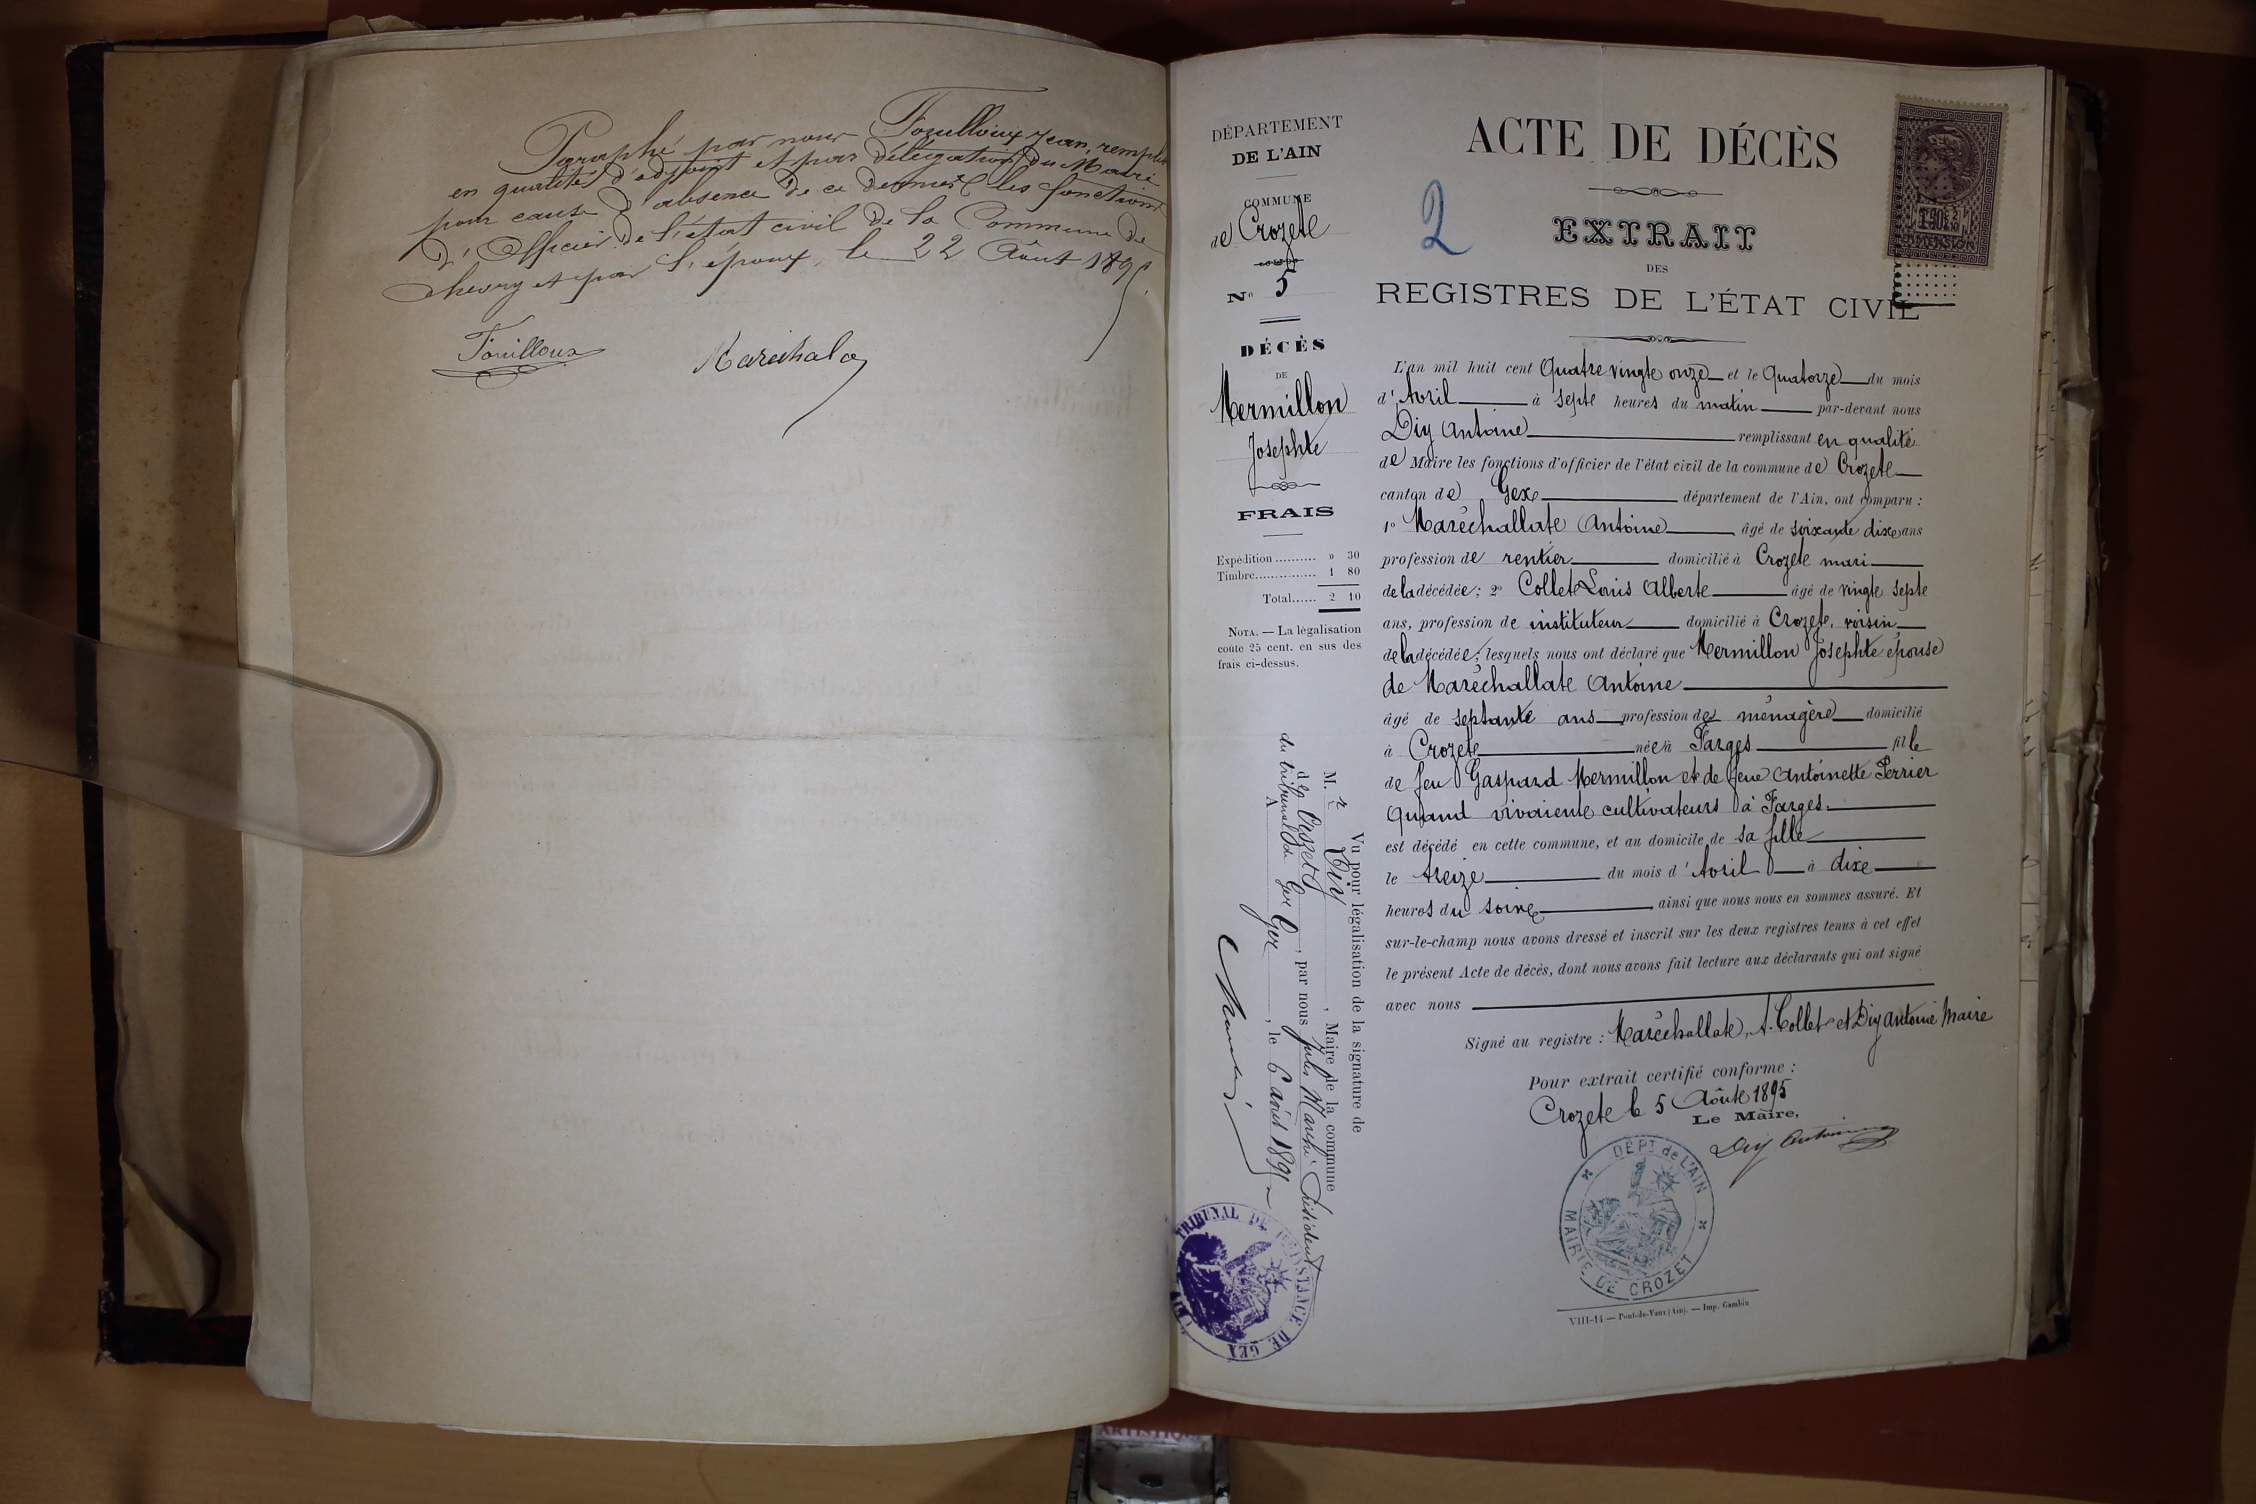 Paraphé par nous Fouilloux Jean, remplit
en qualités d'adjoint et par délégation du Maire
pour cause d'absence de ce dernier les fonctions
d'Officier de l'état civil de la Commune de
Chevry et par l'époux, le 22 Août 1895.
Fouilloux
Maréchala
DÉPARTEMENT
DE L'AIN
COMMUNE
de Crozete
No 5
DÉCÈS
DE
Mermillon
Josephte
FRAIS
Expédition .......... » 30
Timbre............... 1 80
Total...... 2 10
NOTA. — La légalisation
coûte 25 cent. en sus des
frais ci-dessus.
Vu pour légalisation de la signature de
M. r Diy, Maire de la commune
de Crozet, par nous Jules Marchi Président
du tribunal de Gex
A Gex, le 6 août 1895
TRIBUNAL DE 1RE INSTANCE DE GEX
ACTE DE DÉCÈS
2
EXTRAIT
DES
REGISTRES DE L'ÉTAT CIVIL
DIMENSION
L'an mil huit cent Quatre vingte onze et le Quatorze du mois
d'Avril à septe heures du matin par-devant nous
Diy Antoine remplissant en qualité
de Maire les fonctions d'officier de l'état civil de la commune de Crozete
canton de Gex département de l'Ain, ont comparu :
1o Maréchallate Antoine âgé de soixante dixe ans
profession de rentier domicilié à Crozete mari
de la décédée; 2o Collet Louis Alberte âgé de vingte septe
ans, profession de instituteur domicilié à Crozete, voisin
de la décédée; lesquels nous ont déclaré que Mermillon Josephte épouse
de Maréchallate Antoine
âgé de septante ans profession de ménagère domicilié
à Crozete née à Farges fille
de feu Gaspard Mermillon et de feue Antoinette Perrier
Quand vivaiente cultivateurs à Farges.
est décédé en cette commune, et au domicile de sa fille
le treize du mois d'Avril à dixe
heures du soire ainsi que nous nous en sommes assuré. Et
sur-le-champ nous avons dressé et inscrit sur les deux registres tenus à cet effet
le présent Acte de décès, dont nous avons fait lecture aux déclarants qui ont signé
avec nous
Signé au registre : Maréchallate, A. Collet et Diy antoine Maire
Pour extrait certifié conforme :
Crozete le 5 Aôute 1895
Le Maire,
Diy Antoine
DEPT de L'AIN
MAIRIE DE CROZET
VIII-14 — Pont-de-Vaux (Ain). — Imp. Gambin